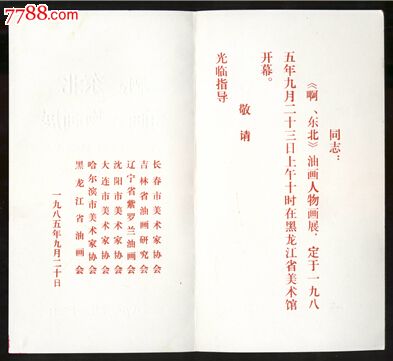 7788.com
同志：
《啊、东北》油画人物画展，定于一九八
五年九月二十三日上午十时在黑龙江省美术馆
开幕。
敬请
光临指导
长春市美术家协会
吉林省油画研究会
辽宁省紫罗兰油画会
沈阳市美术家协会
大连市美术家协会
哈尔滨市美术家协会
黑龙江省油画会
一九八五年九月二十日